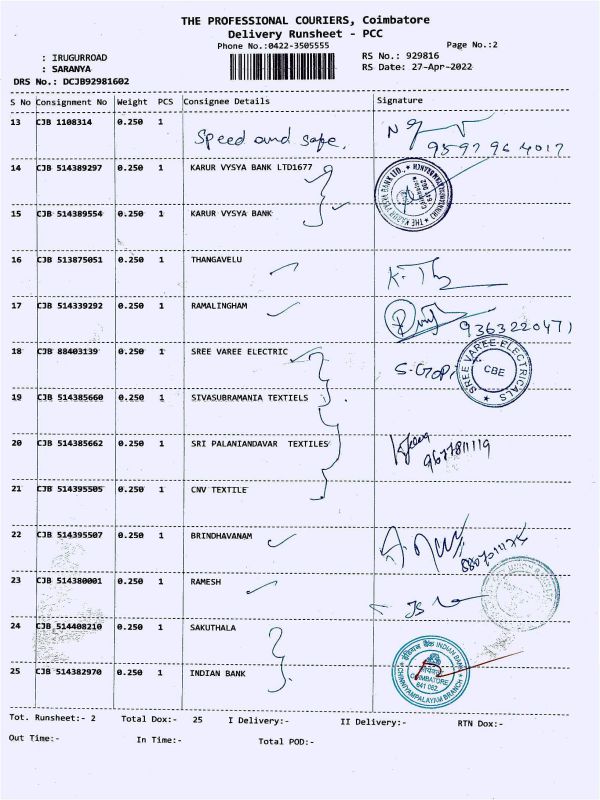 THE PROFESSIONAL COURIERS, Coimbatore
Delivery Runsheet - PCC
Phone No.:0422-3505555
Page No.:2
: IRUGURROAD
RS No.: 929816
: SARANYA
RS Date: 27-Apr-2022
DRS No.: DCJB92981602
S No Consignment No Weight PCS Consignee Details Signature
13 CJB 1108314 0.250 1 Speed and safe.
14 CJB 514389297 0.250 1 KARUR VYSYA BANK LTD1677
15 CJB 514389554 0.250 1 KARUR VYSYA BANK
16 CJB 513875051 0.250 1 THANGAVELU
17 CJB 514339292 0.250 1 RAMALINGHAM 9363220471
18 CJB 88403139 0.250 1 SREE VAREE ELECTRIC
SREE VAREE ELECTRICALS
CBE
19 CJB 514385660 0.250 1 SIVASUBRAMANIA TEXTIELS
20 CJB 514385662 0.250 1 SRI PALANIANDAVAR TEXTILES
9677811119
21 CJB 514395505 0.250 1 CNV TEXTILE
22 CJB 514395507 0.250 1 BRINDHAVANAM
23 CJB 514380001 0.250 1 RAMESH
24 CJB 514408210 0.250 1 SAKUTHALA
25 CJB 514382970 0.250 1 INDIAN BANK
INDIAN BANK
COIMBATORE
641 062
CHINNIYAMPALAYAM BRANCH
Tot. Runsheet:- 2 Total Dox:- 25 I Delivery:- II Delivery:- RTN Dox:-
Out Time:- In Time:- Total POD:-